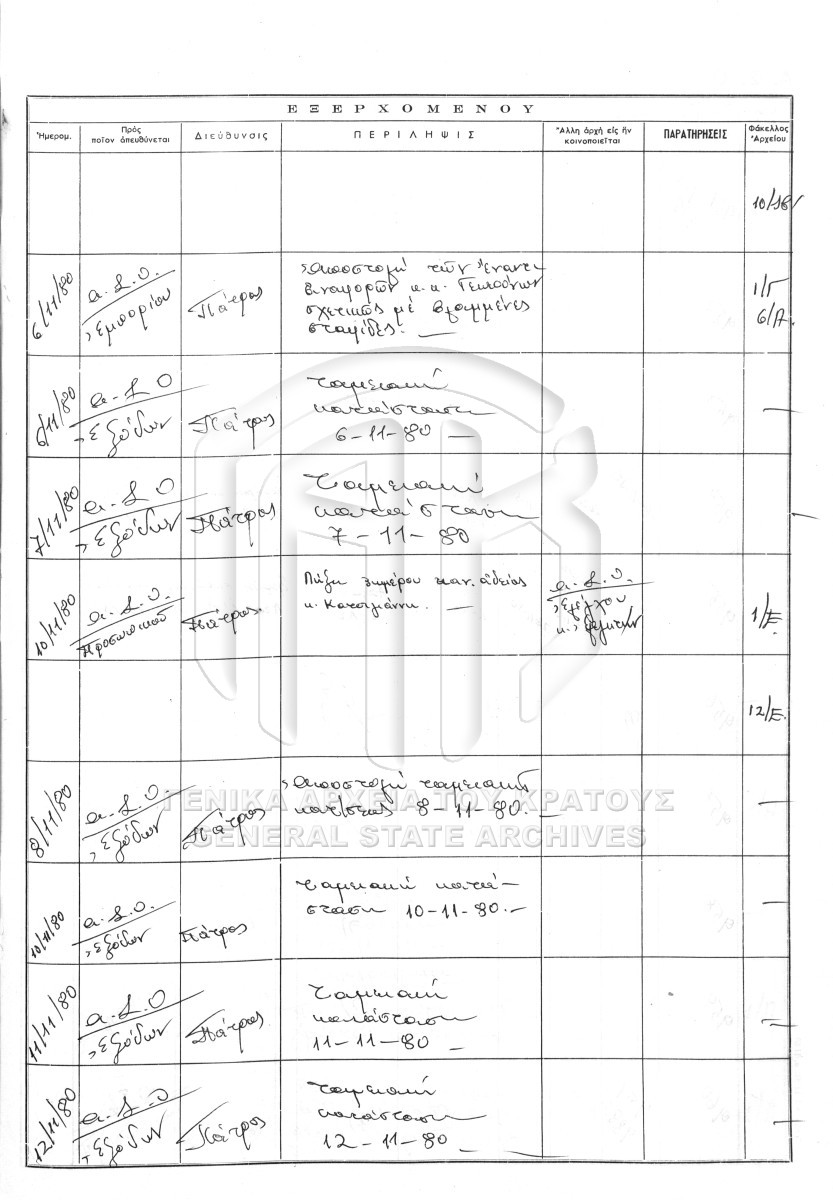 ΕΞΕΡΧΟΜΕΝΟΥ
Ἡμερομ.
Πρὸς
ποῖον ἀπευθύνεται
Διεύθυνσις
ΠΕΡΙΛΗΨΙΣ
Ἄλλη ἀρχὴ εἰς ἣν
κοινοποιεῖται
ΠΑΡΑΤΗΡΗΣΕΙΣ
Φάκελλος
Ἀρχείου
6/11/80
Α.Σ.Ο.
Ἐμπορίου
Πάτρας
Ἀποστολή τῶν
κ.κ.
σχετικῶς μέ βλαμμένες
σταφίδες. —
1/Γ
6/Α.
6/11/80
Α.Σ.Ο
Ἐξόδων
Πάτρας
Ταμειακή
κατάσταση
6-11-80 —
—
7/11/80
Α.Σ.Ο
Ἐξόδων
Πάτρας
Ταμειακή
κατάσταση
7-11-80
—
10/11/80
Α.Σ.Ο.
Προσωπικοῦ
Πάτρας.
ἀδείας
κ. —
Α.Σ.Ο.
Ἐλέγχου
1/Ε.
12/Ε.
8/11/80
Α.Σ.Ο.
Ἐξόδων
Πάτρας
Ἀποστολή ταμειακῆς
κατ/σεως 8-11-80. —
—
ΓΕΝΙΚΑ ΑΡΧΕΙΑ ΤΟΥ ΚΡΑΤΟΥΣ
GENERAL STATE ARCHIVES
10/11/80
Α.Σ.Ο.
Ἐξόδων
Πάτρας
Ταμειακή κατά-
σταση 10-11-80.—
—
11/11/80
Α.Σ.Ο
Ἐξόδων
Πάτρας
Ταμειακή
κατάσταση
11-11-80 —
—
12/11/80
Α.Σ.Ο
Ἐξόδων
Πάτρας
Ταμειακή
κατάσταση
12-11-80 —
—